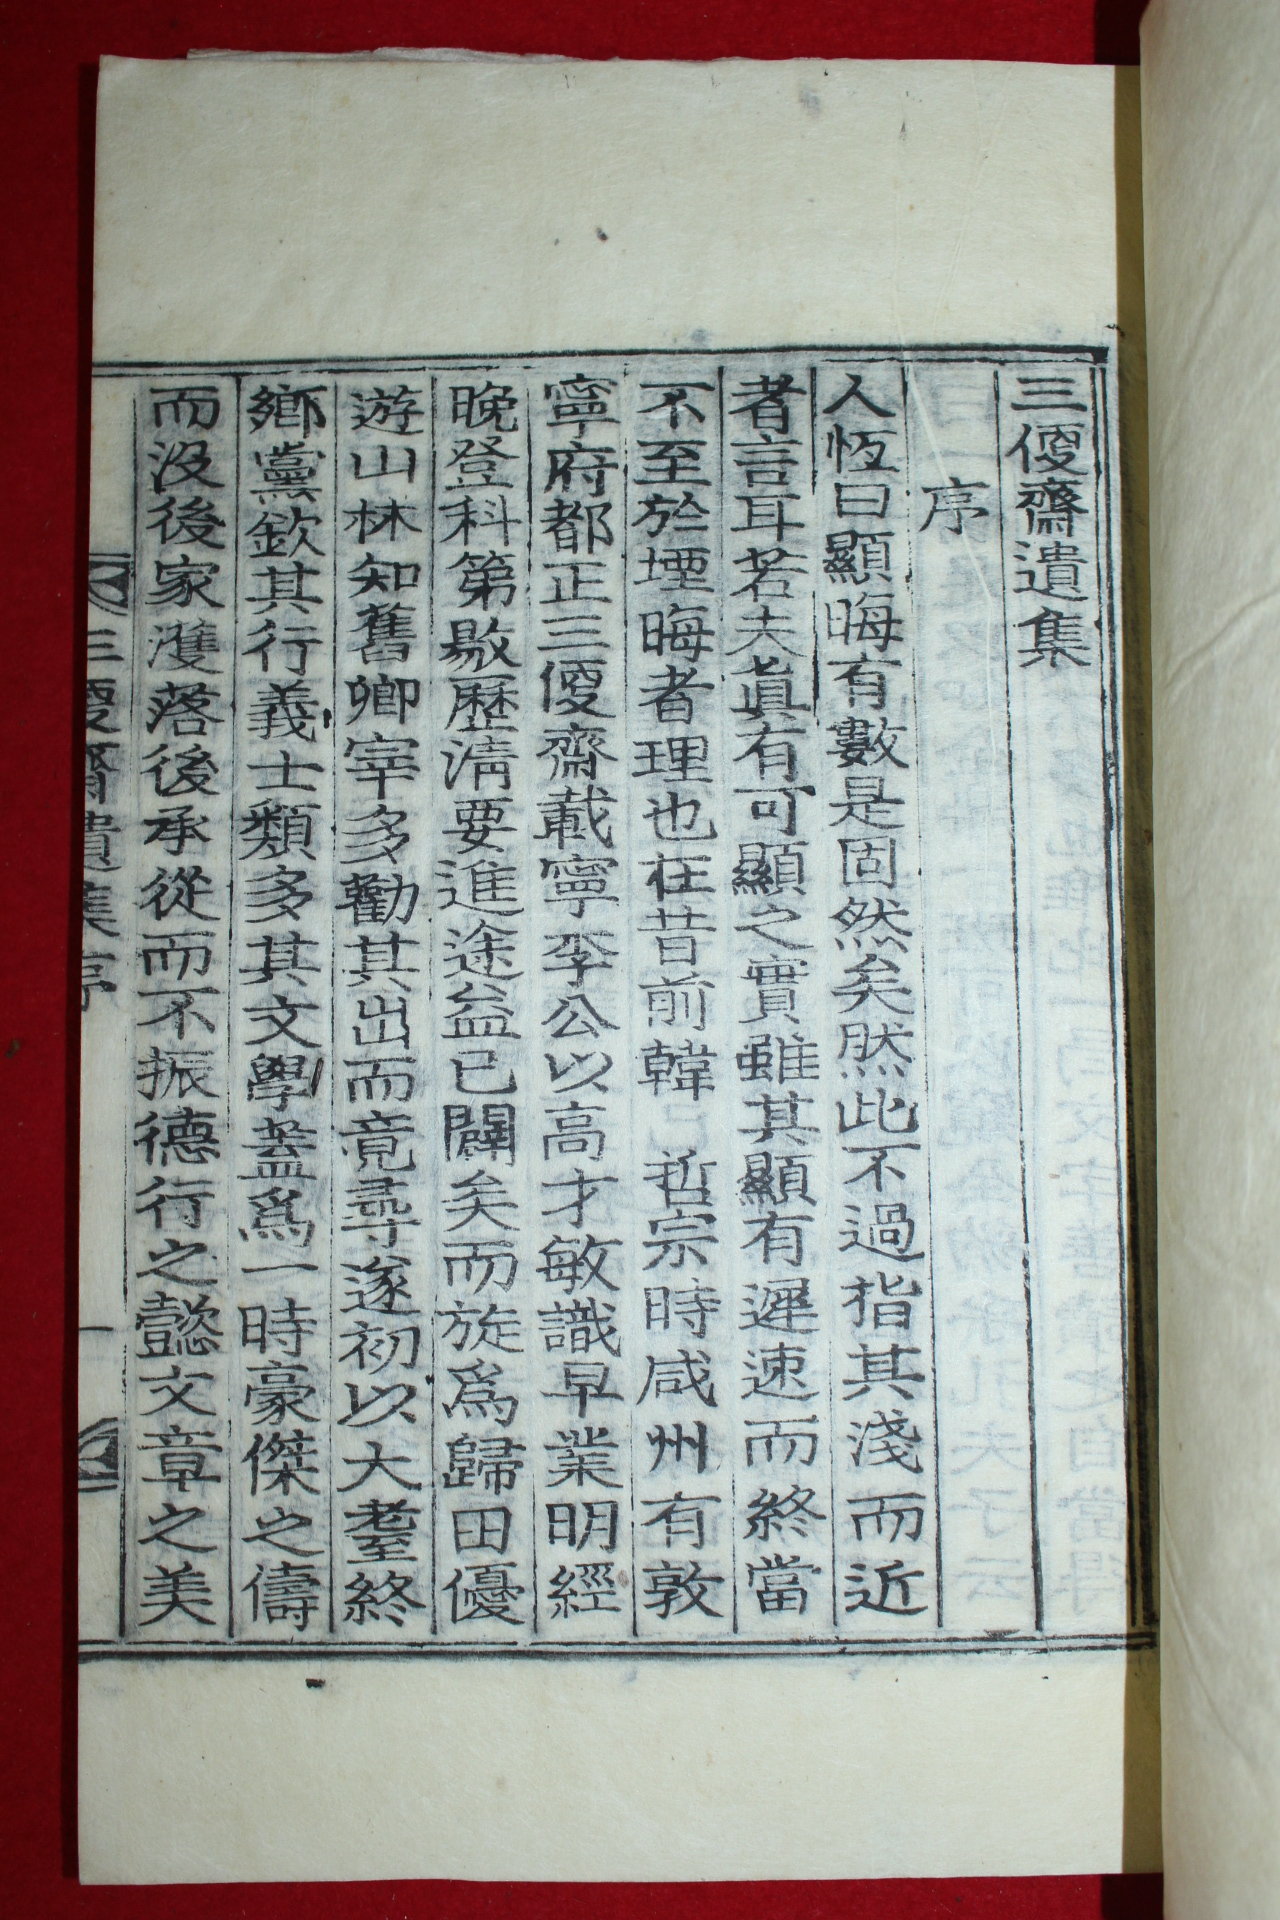 三優齋遺集
序
人恆曰顯晦有數是固然矣然此不過指其淺而近
者言耳若夫眞有可顯之實雖其顯有遲速而終當
不至於堙晦者理也在昔前韓 哲宗時咸州有敦
寧府都正三優齋載寧李公以高才敏識早業明經
晩登科第敭歷淸要進途益已闢矣而旋爲歸田優
遊山林知舊卿宰多勸其出而竟尋遂初以大耋終
鄕黨欽其行義士類多其文學盖爲一時豪傑之儔
而沒後家濩落後承從而不振德行之懿文章之美
三優齋遺集序 一